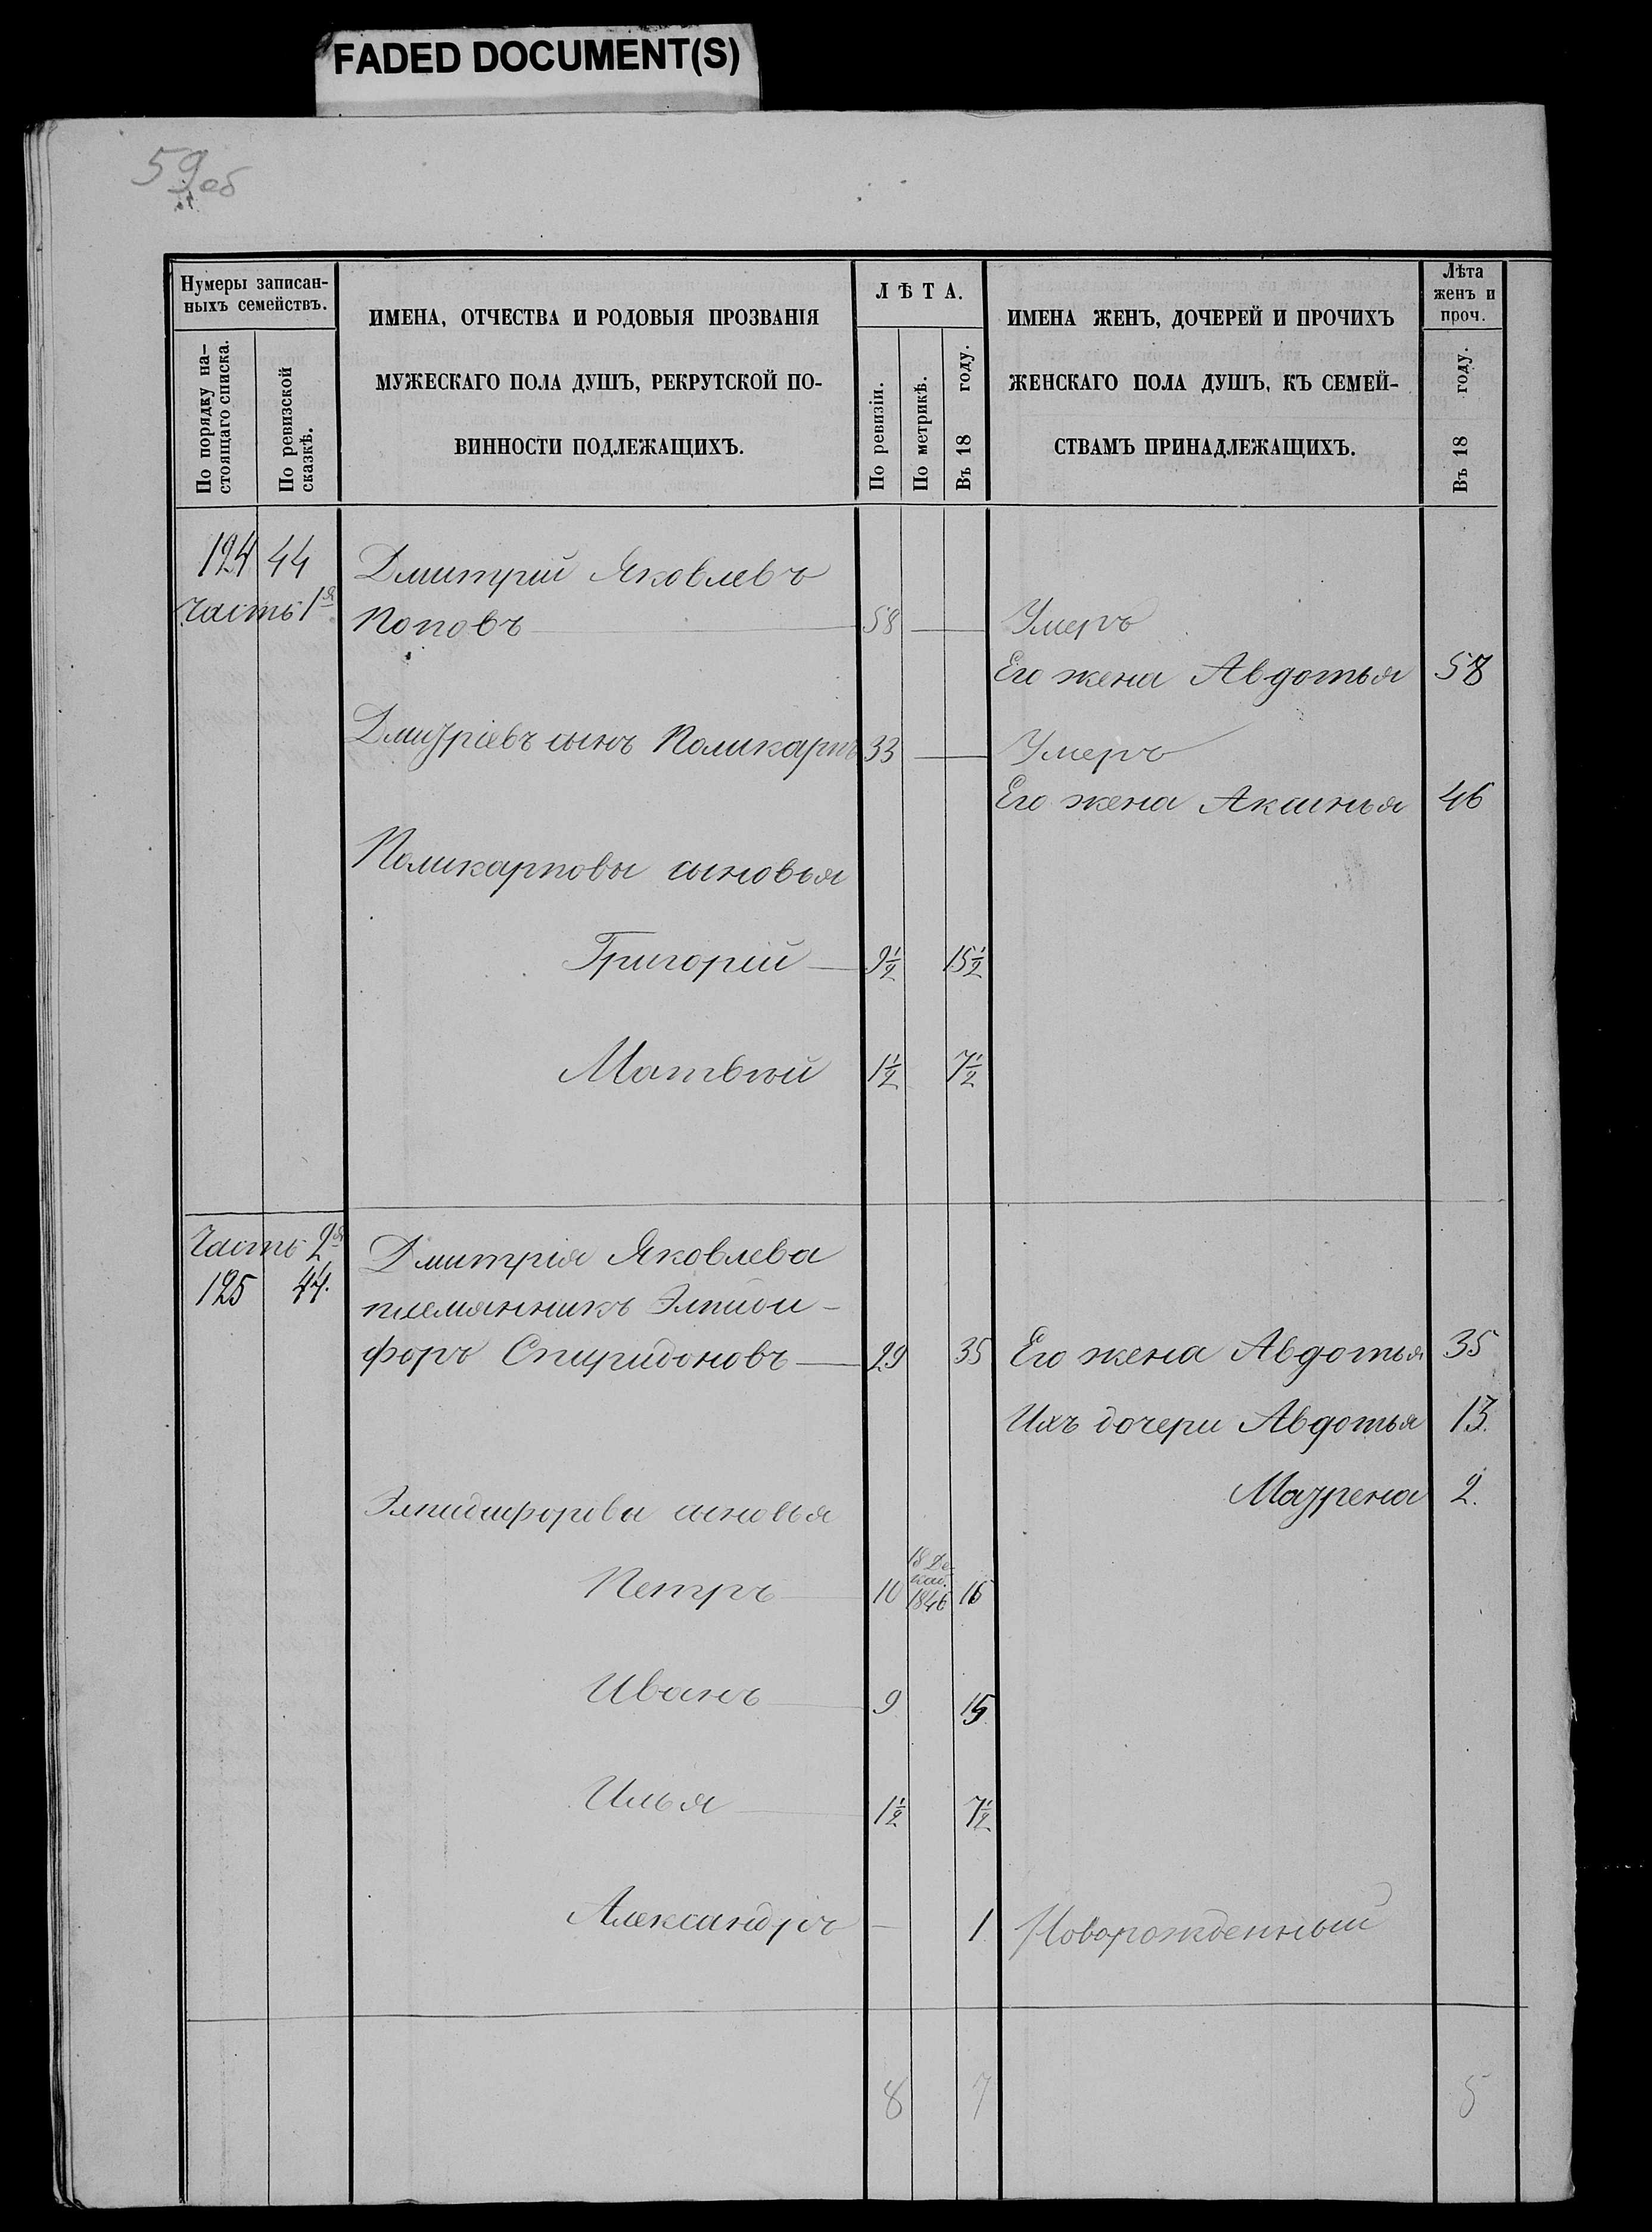 FADED DOCUMENT(S)
59 об
Нумеры записан-
ныхъ семействъ.
По порядку на-
стоящаго списка.
По ревизской
сказкѣ.
ИМЕНА, ОТЧЕСТВА И РОДОВЫЯ ПРОЗВАНІЯ
МУЖЕСКАГО ПОЛА ДУШЪ, РЕКРУТСКОЙ ПО-
ВИННОСТИ ПОДЛЕЖАЩИХЪ.
ЛѢТА.
По ревизіи.
По метрикѣ.
Въ 18 году.
ИМЕНА ЖЕНЪ, ДОЧЕРЕЙ И ПРОЧИХЪ
ЖЕНСКАГО ПОЛА ДУШЪ, КЪ СЕМЕЙ-
СТВАМЪ ПРИНАДЛЕЖАЩИХЪ.
Лѣта
женъ и
проч.
Въ 18 году.
124 44 Дмитрій Яковлевъ
Часть 1я Поповъ 58 Умеръ
Его жена Авдотья 58
Дмитріевъ сынъ Поликарпъ 33 Умеръ
Его жена Аксинья 46
Поликарповы сыновья
Григорій 9½ 15½
Матвѣй 1½ 7½
Часть 2я Дмитрія Яковлева
125 44. племянникъ Элпиди-
форъ Спиридоновъ 29 35 Его жена Авдотья 35
Ихъ дочери Авдотья 13.
Маурена 2.
Элпидифоровы сыновья
Петръ 10 18 Де-
каб.
1846 16
Иванъ 9 15
Илья 1½ 7½
Александръ — 1 Новорожденный
8 7 5